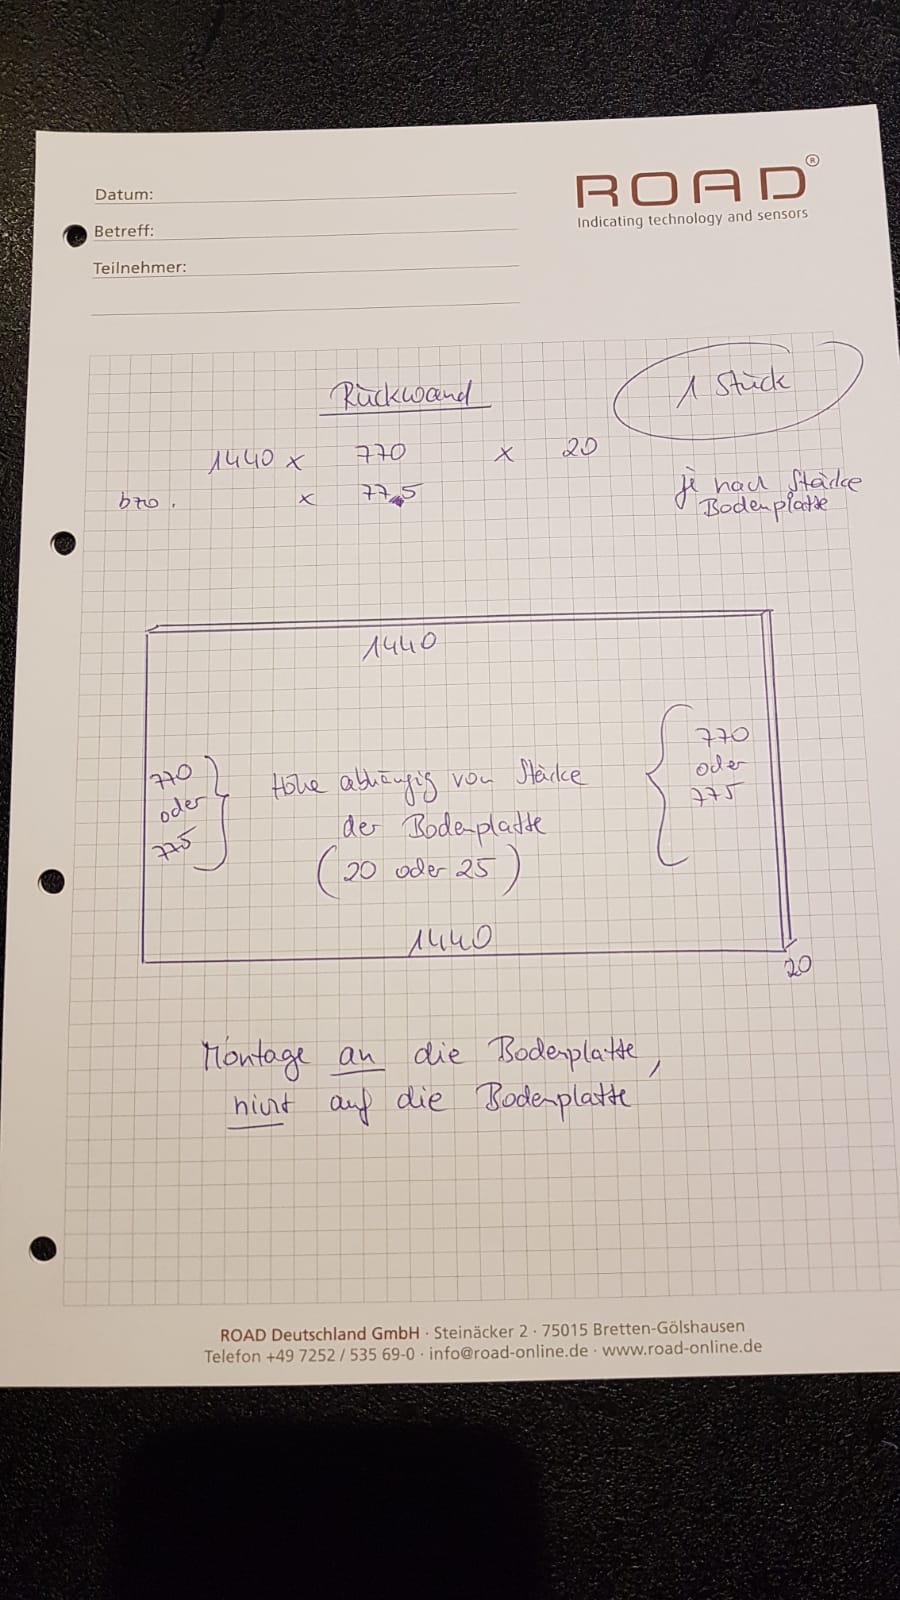 Datum:
Betreff:
Teilnehmer:
ROAD®
Indicating technology and sensors
Rückwand
1 Stück
1440 x 770 x 20
bzo. x 775
je nach Stärke
Bodenplatte
1440
770
oder
775
Höhe abhängig von Stärke
der Bodenplatte
(20 oder 25)
770
oder
775
1440
20
Montage an die Bodenplatte,
nicht auf die Bodenplatte
ROAD Deutschland GmbH · Steinäcker 2 · 75015 Bretten-Gölshausen
Telefon +49 7252 / 535 69-0 · info@road-online.de · www.road-online.de